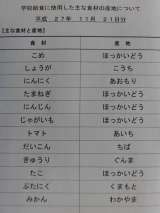 学校給食に使用した主な食材の産地について
平成 27年 11月 21日分
【主な食材と産地】
食材 産地
こめ ほっかいどう
しょうが こうち
にんにく あおもり
たまねぎ ほっかいどう
にんじん ほっかいどう
じゃがいも ほっかいどう
トマト あいち
だいこん ちば
きゅうり ぐんま
たこ ほっかいどう
ぶたにく くまもと
みかん わかやま